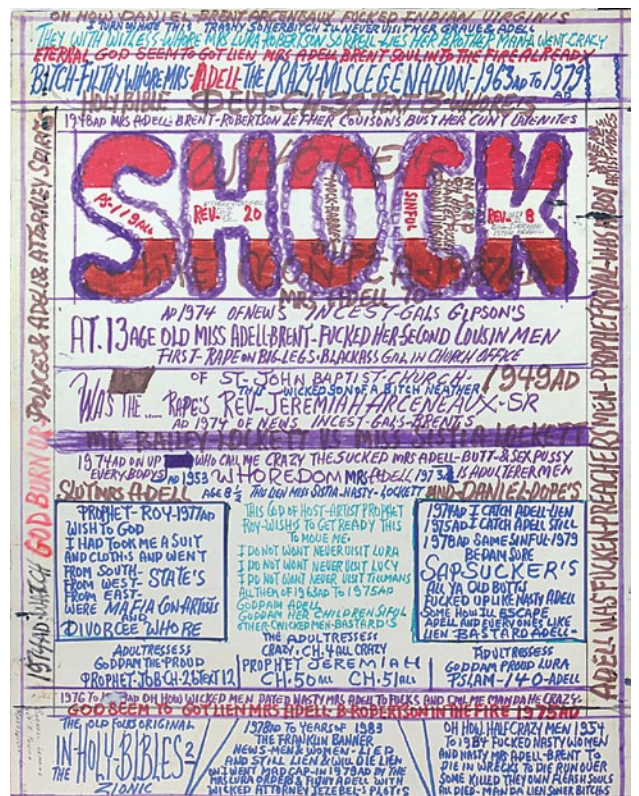 OH HOW DANIEL-BRENT-ARCENEAUX FUCKED INDIAN VIRGIN'S
I TURN ON HATE THIS TRASHY SONERBITCH ILL NEVER VISIT HER GRAVE & ADELL
THEY WITH WITLESS-THORE MRS LURA ROBERTSON SORRELL-LIES HER BROTHER MAMA WENT CRACY
ETERNAL GOD SEEM TO GOT LIEN MRS ADELL BRENT SOUL INTO THE FIRE ALREADY
BITCH-FILTHY WHORE MRS-ADELL THE CRAZY-MISCEGENATION-1963AD TO 1979
AD
HOLY BIBLE DEUT-CH-32 TEXT 8-WHORE'S
1948AD MRS ADELL-BRENT-ROBERTSON LET HER COUISONS BUST HER CUNT LATENITES
SHOCK
PS-119 ALL
REV- 20
SINFUL
REV- 8
MRS ADELL TO
AD 1974 OF NEWS INCEST-GALS GIPSON'S
AT. 13 AGE OLD MISS ADELL-BRENT-FUCKED HER SECOND COUSIN MEN
FIRST-RAPE ON BIG LEGS-BLACKASS GAL IN CHURCH OFFICE
OF ST-JOHN BAPTIST-CHURCH-1949AD
THIS WICKED SON OF A BITCH NEATHER
WAS THE RAPE'S REV-JEREMIAH ARCENEAUX-SR
AD 1974 OF NEWS INCEST-GALS-BRENT'S
MR BAILEY-LOCKETT VS MISS SISTIA LOCKETT
1974AD ON UP WHO CALL ME CRAZY THE SUCKED MRS ADELL-BUTT-& SEX PUSSY
EVERYBODYS AD 1953 WHOREDOM MRS ADELL 1973 IS ADULTERER MEN
SLUT MRS ADELL AGE 8½ THIS LIEN MISS SISTIA-NASTY-LOCKETT AND-DANIEL-DOPE'S
PROPHET-ROY-1977AD
WISH TO GOD
I HAD TOOK ME A SUIT
AND CLOTHS AND WENT
FROM SOUTH-
FROM WEST-STATE'S
FROM EAST-
WERE MAFIA CON-ARTISTS
AND
DIVORCEE WHORE
THIS GOD OF HOST-ARTIST PROPHET
ROY-WISHS TO GET READY THIS
TO MOVE ME.
I DO NOT WONT NEVER VISIT LURA
I DO NOT WONT NEVER VISIT LUCY
I DO NOT WONT NEVER VISIT TILLMANS
ALL THEM OF 1963AD TO 1975AD
GODDAM ADELL
GODDAM HER CHILDREN SIFUL
OTHER-CWICKED MEN-BASTARD'S
1974AD I CATCH ADELL-LIEN
1975AD I CATCH ADELL STILL
1978AD SAME SINFUL-1979
BE DAM SURE
SAP-SUCKER'S
ALL YA OLD BUTTS
FUCKED UP LIKE NASTY ADELL
SOME HOW ILL ESCAPE
ADELL AND EVERYONES LIKE
LIEN BASTARD ADELL-
ADULTRESSESS
GODDAM THE PROUD
PROPHET-JOB CH-26 TEXT 12
THE ADULTRESSESS
CRAZY-CH.4 ALL CRAZY
PROPHET JEREMIAH
CH-50 ALL CH-51 ALL
ADULTRESSESS
GODDAM PROUD LURA
PSLAM-140-ADELL
AD OH HOW WICKED MEN DATED NASTY MRS ADELL TO FUCKS AND CALL ME MANDA HE CRAZY-
GOD SEEM TO GOT LIEN MRS ADELL-B-ROBERTSON IN THE FIRE 1975AD
THE OLD FOLKS ORIGINAL
IN THE HOLY-BIBLES
ZIONIC
1978AD TO YEARS OF 1983
THE FRANKLIN BANNER
NEWS-MEN & WOMEN-LIED
AND STILL LIEN & WILL DIE LIEN
ON I WENT MAD CAP-IN 1979AD BY THE
MRS LURA ORDERS & FIGHT ADELL WITH
WICKED ATTORNEY JEZEBEL'S PLOTS
OH HOW HALF CRAZY MEN 1954
TO 1984 FUCKED NASTY WOMEN
AND NASTY MRS ADELL-BRENT TO
DIE IN WRECKS TO DIE RUN OVER
SOME KILLED THEY OWN FLEASH SOULS
ALL DIED-MAN DA LIEN SONER BITCHS
1974AD WATCH GOD BURN UP-POLICES & ADELL & ATTORNEY SPIRITS
ADELL WAS FUCKEN-PREACHERS MEN-PROPHET ROYAL-WHAT A BOY